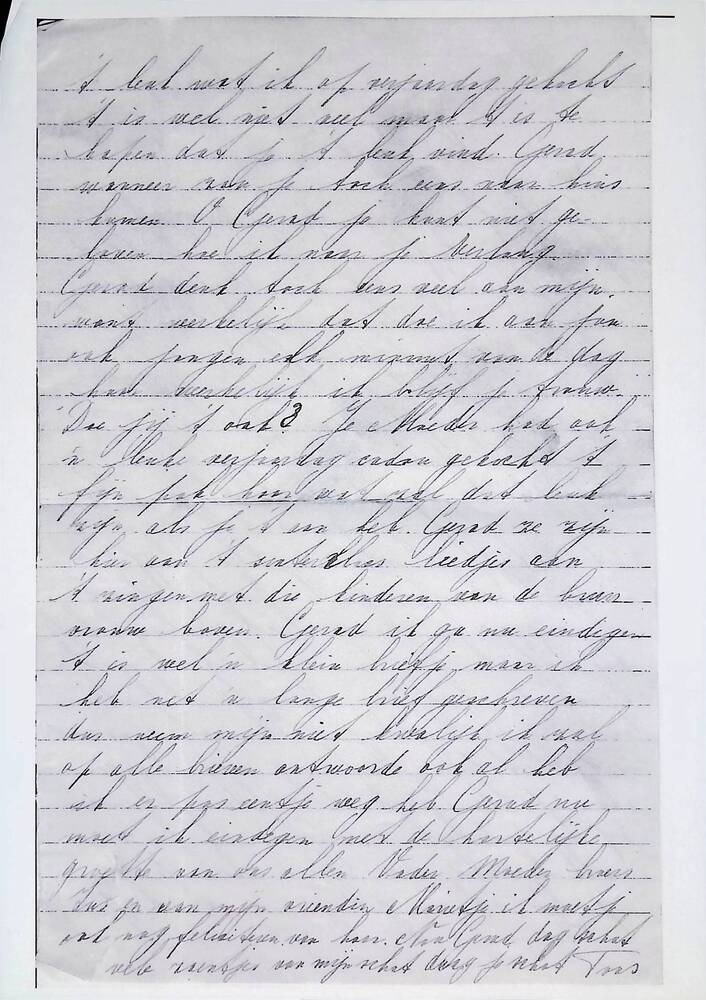 't leuk wat ik op verjaardag gekocht
't is wel niet veel maar 't is te
hopen dat je 't leuk vind. Gerad
wanneer van je toch eens naar huis
komen O Gerad je kunt niet ge-
loven hoe ik naar je verlang
Gerad denk toch eens veel aan mijn
want werkelijk dat doe ik aan jou
ook jongen elk minuut van de dag
hoor werkelijk ik blijf je trouw.
Doe jij 't ook? Je Moeder had ook
'n leuke verjaardag cadou gekocht 't
fijn pak hoor wat zal dat leuk
zijn als je 't aan heb. Gerad ze zijn
hier aan 't sinterklaas liedjes aan
't zingen met die kinderen van de buur
vrouw boven. Gerad ik ga nu eindigen
't is wel 'n klein briefje maar ik
heb net 'n lange brief geschreven
dus neem mijn niet kwalijk ik zal
op alle brieven antwoorde ook al heb
ik er pas eentje weg heb Gerad nu
moet ik eindegen met de hartelijke
groette van ons allen Vader Moeder broers
Zus en van mijn vriendin Marietje ik moet je
ook nog feliciteren van haar. Nou Gerad dag schat
vele zoentjes van mijn schat daag je schat Toos